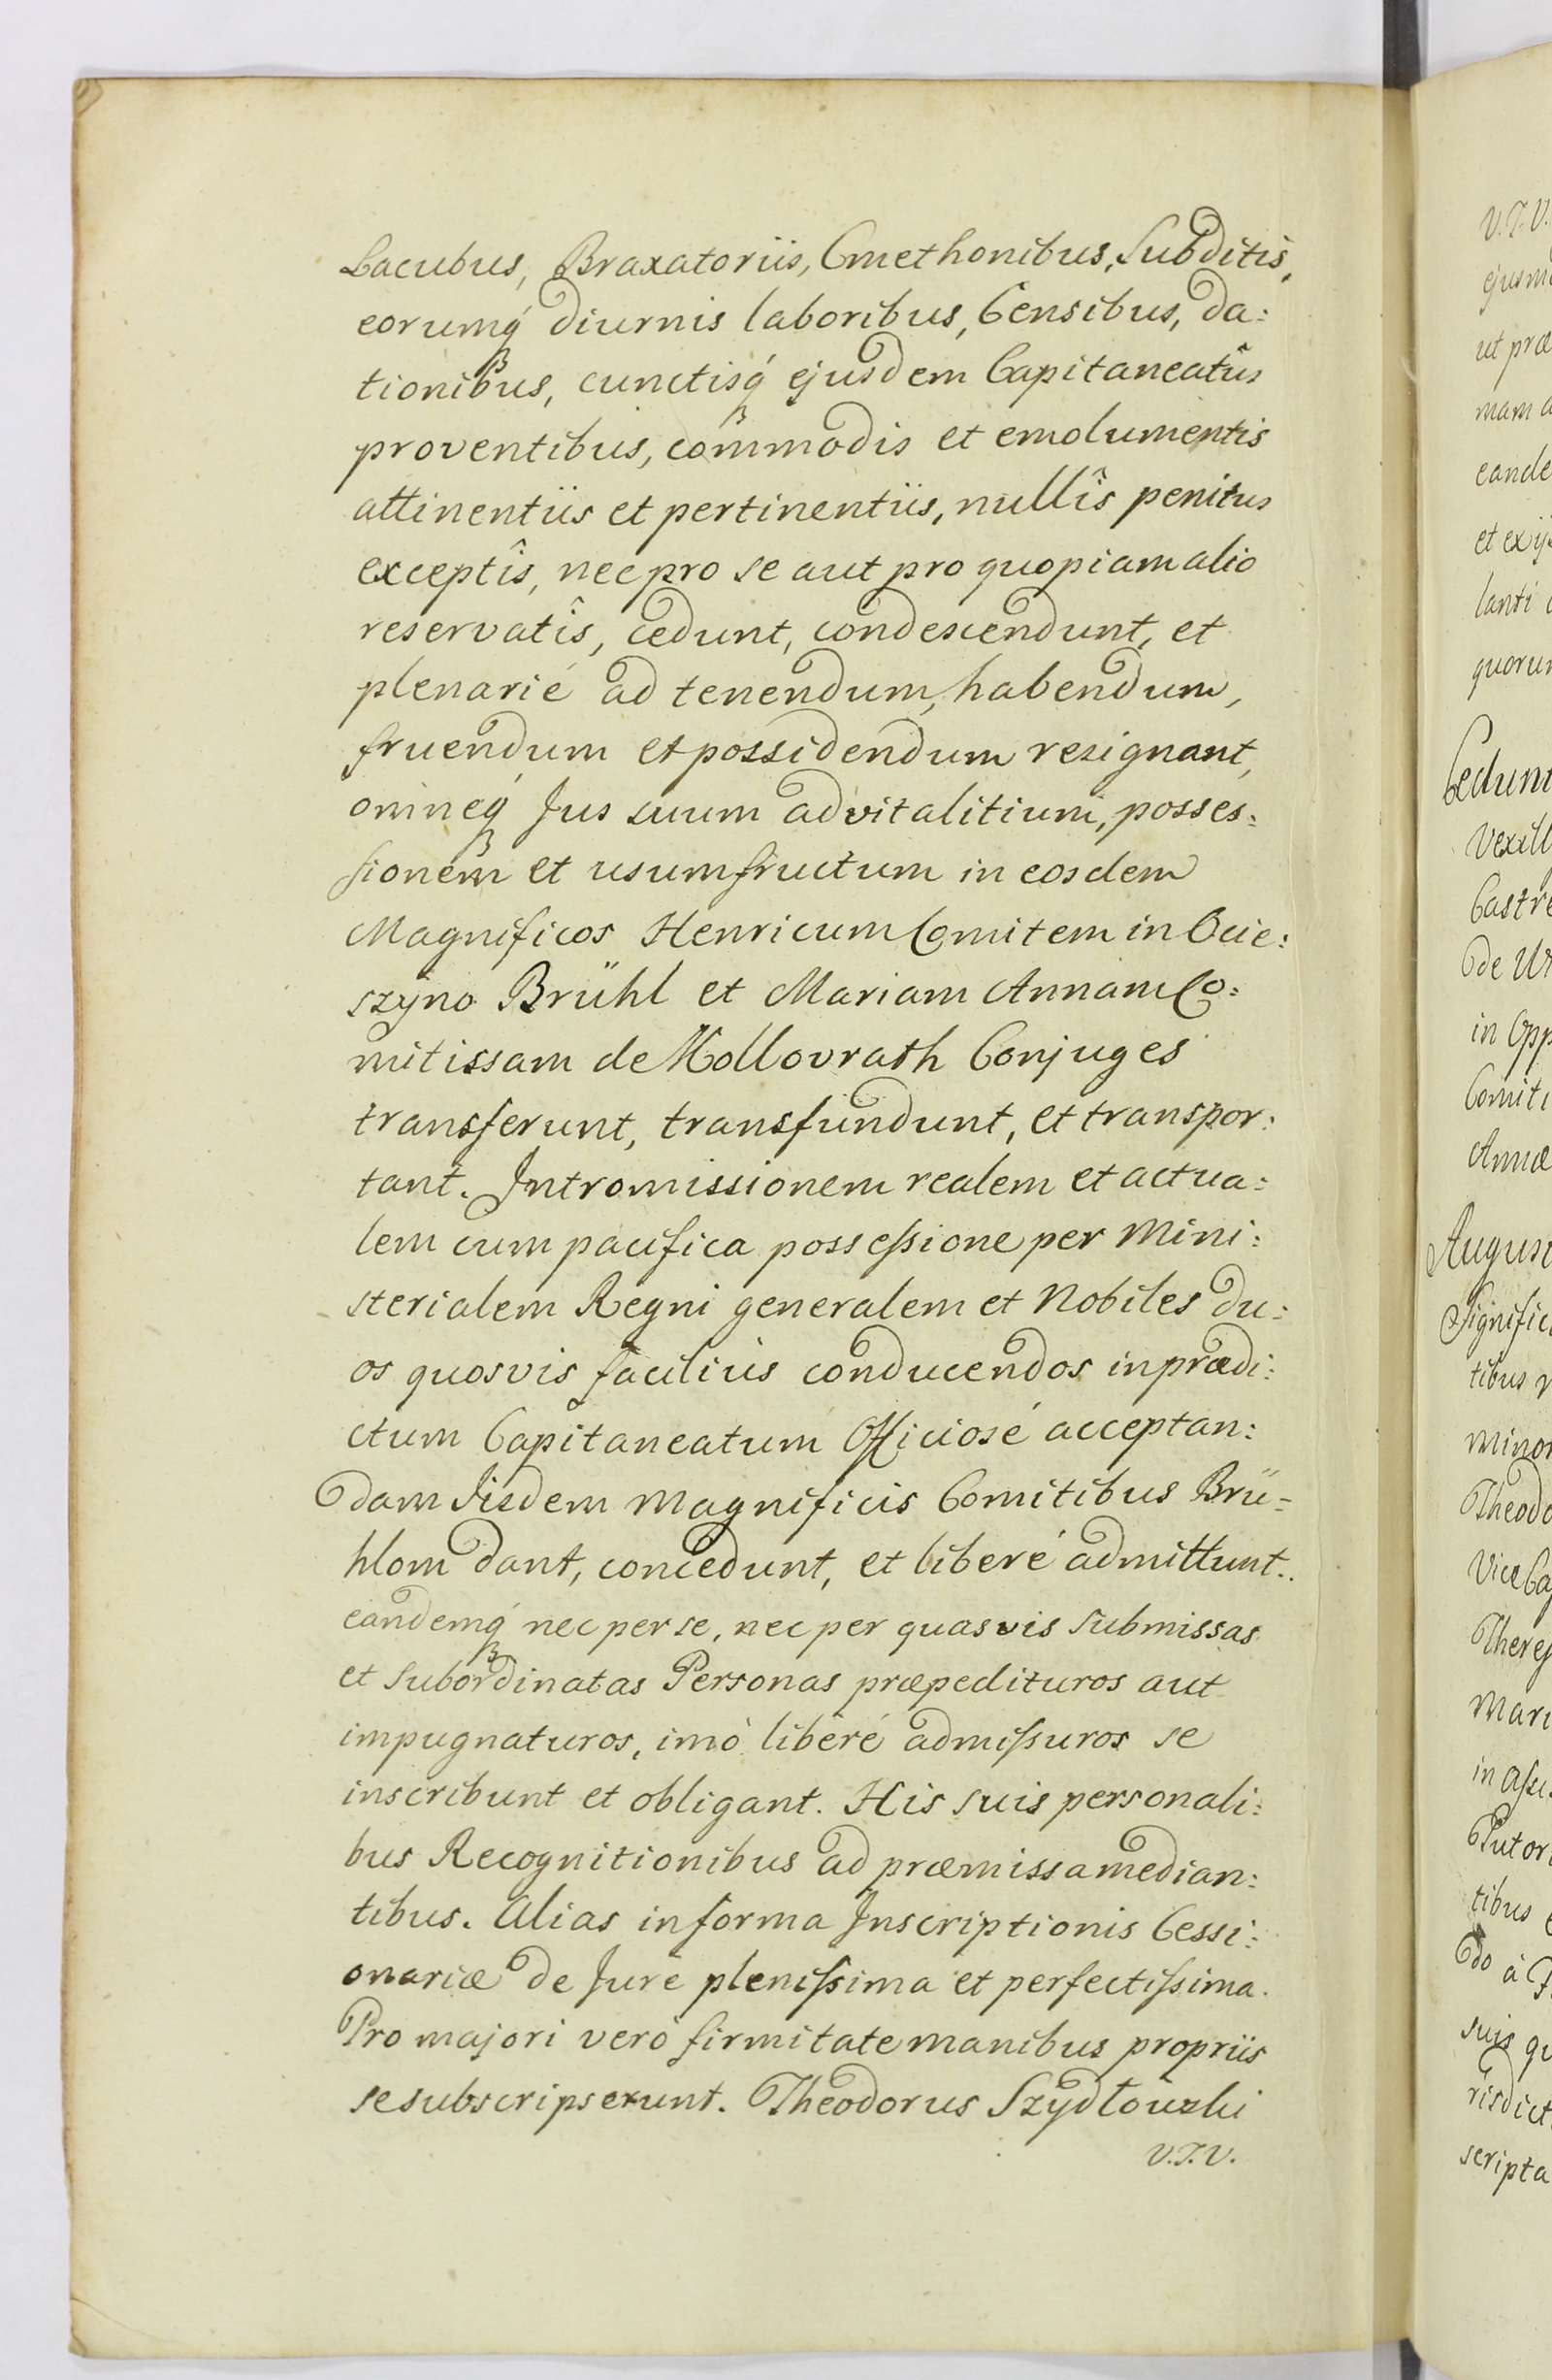 Lacubus, Braxatoriis, Cmethonibus, Subditis,
eorumq́ diurnis laboribus, Censibus, da:
tionibus, cunctisq́ ejusdem Capitaneatûs
proventibus, commodis et emolumentis
attinentiis et pertinentiis, nullîs penitus
exceptîs, nec pro se aut pro quopiam alio
reservatîs, cedunt, condescendunt, et
plenarié ad tenendum, habendum,
fruendum et possidendum resignant,
omneq́ Jus suum advitalitium, posses:
sionem et usumfructum in eosdem
Magnificos Henricum Comitem in Ocie:
szyno Brühl et Mariam Annam Co:
mitissam de Kollovrath Conjuges
transferunt, transfundunt, et transpor:
tant. Intromissionem realem et actua:
lem cum pacifica possessione per Mini:
sterialem Regni generalem et Nobiles du:
os quosvis facilius conducendos in prædi:
ctum Capitaneatum Officiosé acceptan:
dam Iisdem Magnificis Comitibus Brü=
hlom dant, concedunt, et liberé admittunt.
eandemq́ nec per se, nec per quasvis submissas
et subordinatas Personas præpedituros aut
impugnaturos, imò liberé admissuros se
inscribunt et obligant. His suis personali:
bus Recognitionibus ad præmissa median:
tibus. Alias in forma Inscriptionis Cessi:
onariæ de Jure plenissima et perfectissima.
Pro majori veró firmitate manibus propriis
se subscripserunt. Theodorus Szydłowski
V.T.V.
V.T.V.
ejusm
ut præ
mam a
eande
et exij
lanti
quorum
Cedunt
Vexill
Castre
de Ur
in Opp
Comiti
Annæ
August
Signific
tibus
Minor
Theodo
Vice Ca
Theres
Mari
in Asse
Tutor
tibus
do à
suis qu
risdict
scripta